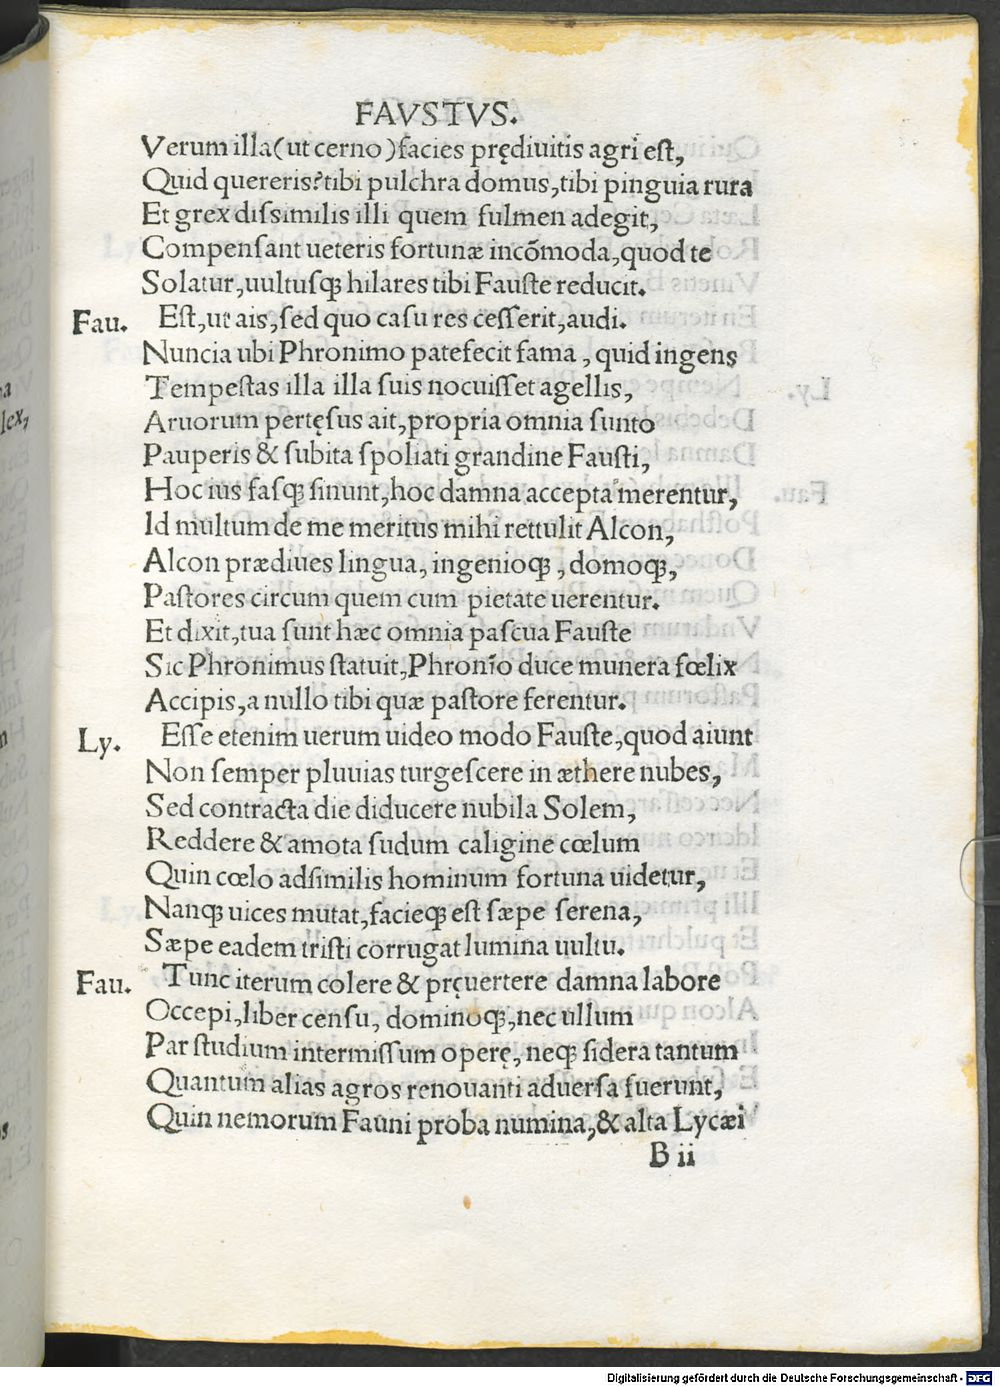 FAVSTVS.
Verum illa (ut cerno) facies prędiuitis agri est,
Quid quereris? tibi pulchra domus, tibi pinguia rura
Et grex dissimilis illi quem fulmen adegit,
Compensant ueteris fortunæ incõmoda, quod te
Solatur, uultusqꝫ hilares tibi Fauste reducit.
Fau. Est, ut ais, sed quo casu res cesserit, audi.
Nuncia ubi Phronimo patefecit fama, quid ingens
Tempestas illa illa suis nocuisset agellis,
Aruorum pertęsus ait, propria omnia sunto
Pauperis & subita spoliati grandine Fausti,
Hoc ius fasqꝫ sinunt, hoc damna accepta merentur,
Id multum de me meritus mihi rettulit Alcon,
Alcon prædiues lingua, ingenioqꝫ, domoqꝫ,
Pastores circum quem cum pietate uerentur.
Et dixit, tua sunt hæc omnia pascua Fauste
Sic Phronimus statuit, Phronĩo duce munera fœlix
Accipis, a nullo tibi quæ pastore ferentur.
Ly. Esse etenim uerum uideo modo Fauste, quod aiunt
Non semper pluuias turgescere in æthere nubes,
Sed contracta die diducere nubila Solem,
Reddere & amota sudum caligine cœlum
Quin cœlo adsimilis hominum fortuna uidetur,
Nanqꝫ uices mutat, facieqꝫ est sæpe serena,
Sæpe eadem tristi corrugat lumina uultu.
Fau. Tunc iterum colere & pręuertere damna labore
Occepi, liber censu, dominoqꝫ, nec ullum
Par studium intermissum operę, neqꝫ sidera tantum
Quantum alias agros renouanti aduersa fuerunt,
Quin nemorum Fauni proba numina, & alta Lycæi
B ii
Digitalisierung gefördert durch die Deutsche Forschungsgemeinschaft - DFG